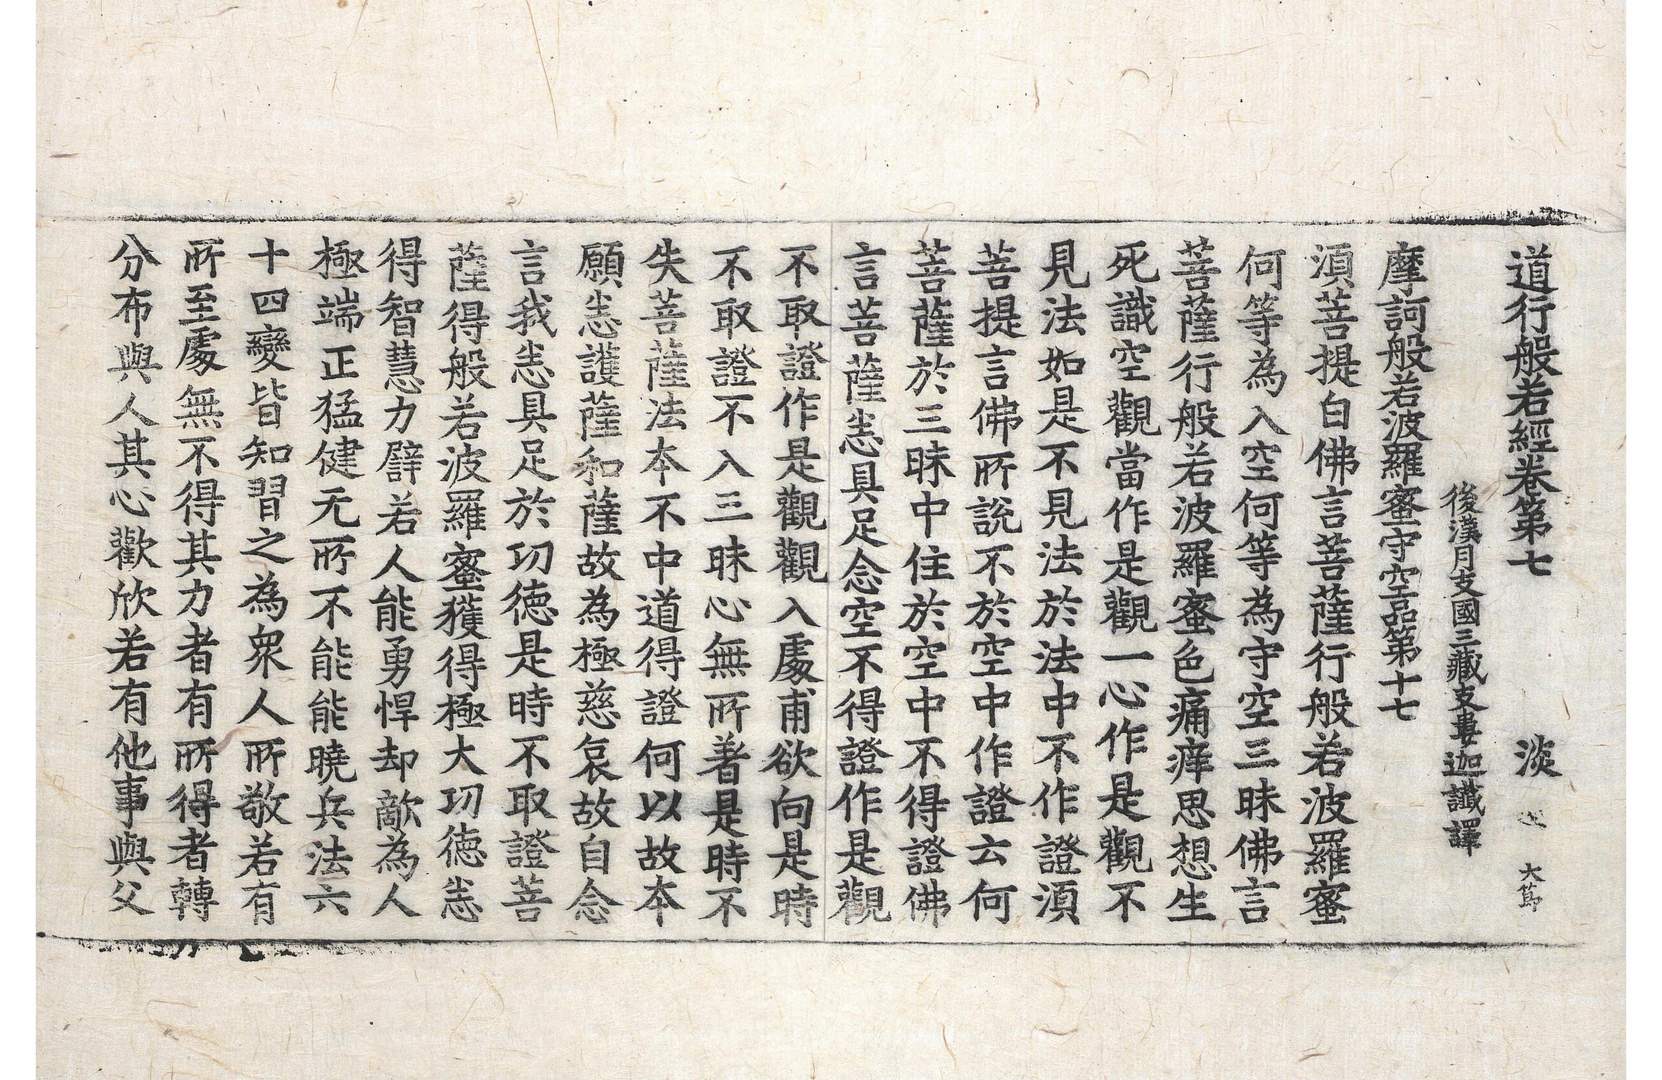 道行般若經卷第七 淡 大節
後漢月支國三藏支婁迦讖譯
摩訶般若波羅蜜守空品第十七
須菩提白佛言菩薩行般若波羅蜜
何等為入空何等為守空三昧佛言
菩薩行般若波羅蜜色痛痒思想生
死識空觀當作是觀一心作是觀不
見法如是不見法於法中不作證須
菩提言佛所說不於空中作證云何
菩薩於三昧中住於空中不得證佛
言菩薩悉具足念空不得證作是觀
不取證作是觀觀入處甫欲向是時
不取證不入三昧心無所著是時不
失菩薩法本不中道得證何以故本
願悉護薩和薩故為極慈哀故自念
言我悉具足於功德是時不取證菩
薩得般若波羅蜜獲得極大功德悉
得智慧力譬若人能勇悍却敵為人
極端正猛健无所不能能曉兵法六
十四變皆知習之為衆人所敬若有
所至處無不得其力者有所得者轉
分布與人其心歡欣若有他事與父